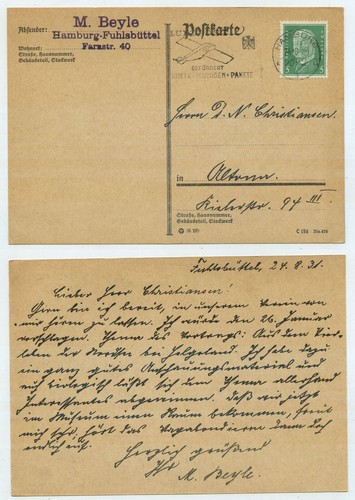 Absender:
M. Beyle
Hamburg-Fuhlsbüttel
Farnstr. 40
Wohnort:
Straße, Hausnummer,
Gebäudeteil, Stockwerk
Postkarte
BEFÖRDERT
BRIEFE PÄCKCHEN + PAKETE
HAMBURG
5
Herrn D. N. Christiansen
in Altona.
Kielerstr. 94 III.
Straße, Hausnummer,
Gebäudeteil, Stockwerk
C 154 Din 476
Fuhlsbüttel, 24.8.31.
Lieber Herr Christiansen!
Gern bin ich bereit, in unserem Verein von
mir hören zu lassen. Ich würde den 26. Januar
vorschlagen. Thema des Vortrags: Aus dem Tier-
leben der Nordsee bei Helgoland. Ich habe dazu
ein ganz gutes Anschauungsmaterial und
auch biologisch läßt sich dem Thema allerhand
Interessantes abgewinnen. Daß wir jetzt
im Museum einen Raum bekommen, freut
mich sehr, hört das Vagabondieren dann doch
endlich auf.
Herzlich grüßend
Ihr
M. Beyle.